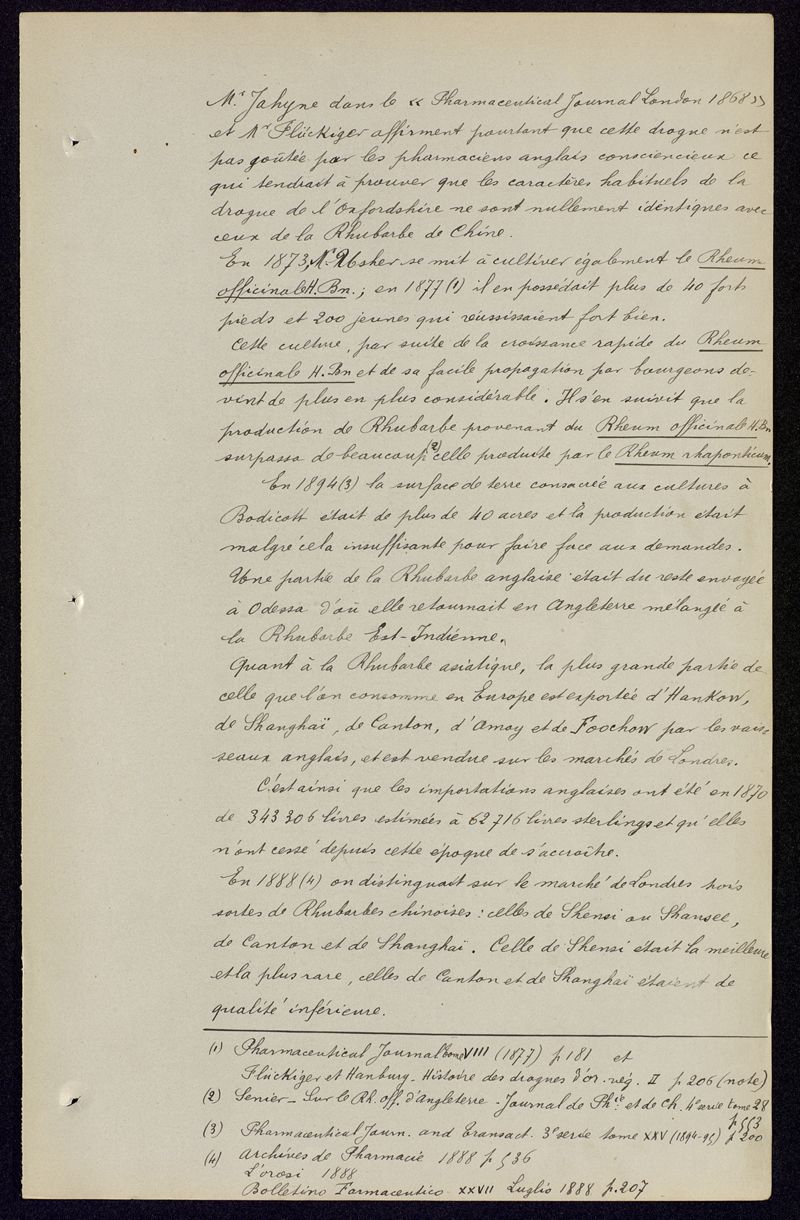 Mr Jahyne dans le « Pharmaceutical Journal London 1868 »
et Mr Flückiger affirment pourtant que cette drogue n'est
pas goûtée par les pharmaciens anglais consciencieux ce
qui tendrait à prouver que les caractères habituels de la
drogue de l'Oxfordshire ne sont nullement identiques avec
ceux de la Rhubarbe de Chine.
En 1873, Mr Usher se mit à cultiver également le Rheum
officinale H. Bn.; en 1877 (1) il en possédait plus de 40 forts
pieds et 200 jeunes qui réussissaient fort bien.
Cette culture, par suite de la croissance rapide du Rheum
officinale H. Bn et de sa facile propagation par bourgeons de-
vint de plus en plus considérable. Il s'en suivit que la
production de Rhubarbe provenant du Rheum officinale H. Bn
surpassa de beaucoup (2) celle produite par le Rheum rhaponticum.
En 1894 (3) la surface de terre consacrée aux cultures à
Bodicott était de plus de 40 acres et la production était
malgré cela insuffisante pour faire face aux demandes.
Une partie de la Rhubarbe anglaise était du reste envoyée
à Odessa d'où elle retournait en Angleterre mélangée à
la Rhubarbe Est-Indienne.
Quant à la Rhubarbe asiatique, la plus grande partie de
celle que l'on consomme en Europe est exportée d'Hankow,
de Shanghaï, de Canton, d'Amoy et de Foochow par les vais-
seaux anglais, et est vendue sur les marchés de Londres.
C'est ainsi que les importations anglaises ont été en 1870
de 343 306 livres estimées à 62 716 livres sterlings et qu'elles
n'ont cessé depuis cette époque de s'accroître.
En 1888 (4) on distinguait sur le marché de Londres trois
sortes de Rhubarbes chinoises : celles de Shensi ou Shansee,
de Canton et de Shanghaï. Celle de Shensi était la meilleure
et la plus rare, celles de Canton et de Shanghaï étaient de
qualité inférieure.
(1) Pharmaceutical Journal tome VIII (1877) p 181 et
Flückiger et Hanbury - Histoire des drogues d'or. vég. II p 206 (note)
(2) Senier - Sur le Rh. off. d'Angleterre - Journal de Phie et de Ch. 4e serie tome 28
p 553
(3) Pharmaceutical Journ. and Transact. 3e serie tome XXV (1894-95) p 200
(4) Archives de Pharmacie 1888 p 536
L'orosi 1888
Bolletino Farmaceutico XXVII Luglio 1888 p. 207